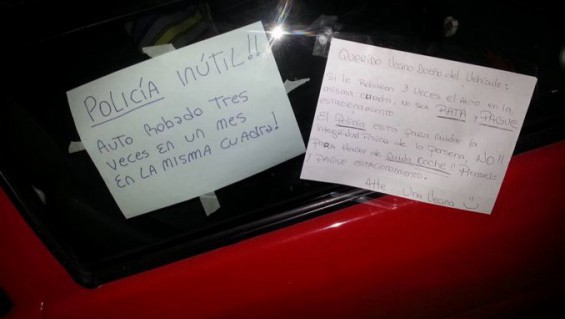 POLICÍA INÚTIL!!
AUTO ROBADO TRES
VECES EN UN MES
EN LA MISMA CUADRA!
Querido Vecino Dueño del Vehículo:
Si le Robaron 3 veces el Auto en la
misma cuadra, no sea RATA y PAGUE
estacionamiento
El Policía esta para cuidar la
integridad física de la persona, NO!!
Para Hacer de Cuida Coche!!
y PAGUE estacionamiento.
Atte Una Vecina